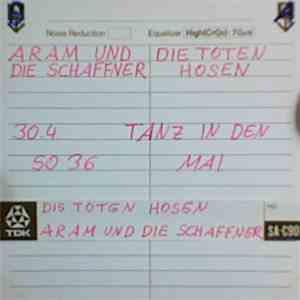 Noise Reduction Equalizer High(CrO2) 70µs
ARAM UND DIE TOTEN
DIE SCHAFFNER HOSEN
30.4 TANZ IN DEN
SO 36 MAI
DIE TOTEN HOSEN
ARAM UND DIE SCHAFFNER
TDK SA-C90